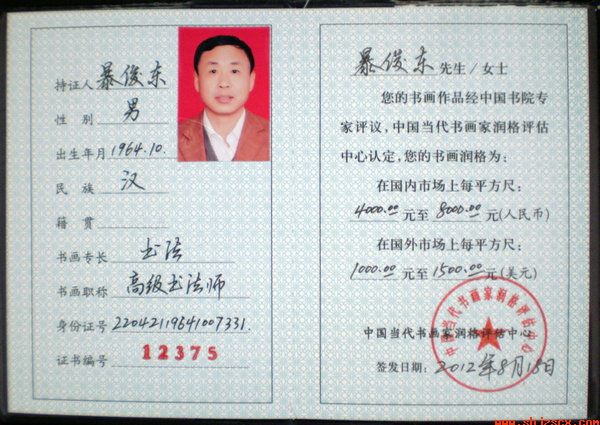 持证人 暴俊东
性别 男
出生年月 1964.10.
民族 汉
籍贯
书画专长 书法
书画职称 高级书法师
身份证号 22042119641007331.
证书编号 12375
暴俊东 先生/女士
您的书画作品经中国书院专
家评议,中国当代书画家润格评估
中心认定,您的书画润格为:
在国内市场上每平方尺:
4000.00 元至 8000.00 元(人民币)
在国外市场上每平方尺:
1000.00 元至 1500.00 元(美元)
中国当代书画家润格评估中心
中国当代书画家润格评估中心
签发日期: 2012年8月18日
www.shjzscx.com